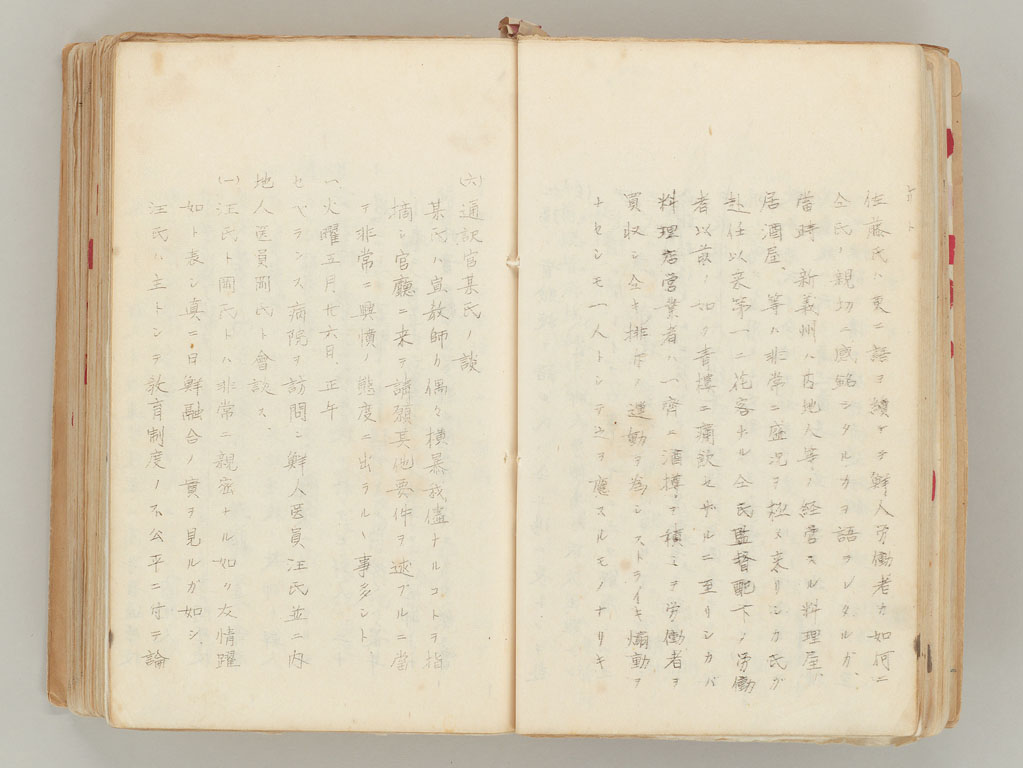 佐藤氏ハ更ニ語ヲ續ケテ鮮人労働者カ如何ニ
仝氏ノ親切ニ感銘シタルカヲ語ラレタルガ、
當時、新義州ハ内地人等ノ経営スル料理屋、
居酒屋、等ハ非常ニ盛況ヲ極メ来リシカ氏ガ
赴任以来第一ニ花客ナル仝氏監督配下ノ労働
者以前ノ如ク青樓ニ痛飲セザルニ至リシカバ
料理店営業者ハ一齊ニ酒樽ヲ積ミテ労働者ヲ
買収シ仝氏排斥ノ運動ヲ為シストライキ煽動ヲ
ナセシモ一人トシテ之ヲ應スルモノナリキ
(六)通訳官某氏ノ談
某氏ハ宣教師カ偶々横暴我儘ナルコトヲ指
摘シ官廳ニ来ラ請願其他要件ヲ述ブルニ當
テ非常ニ興憤ノ態度ニ出ラルヽ事多シト、
一、火曜五月廿六日、正午
セベランス病院ヲ訪問シ鮮人医員汪氏並ニ内
地人医員岡氏ト會談ス、
(一)汪氏ト岡氏トハ非常ニ親密ナル如ク友情躍
如ト表シ真ニ日鮮融合ノ實ヲ見ルガ如シ、
汪氏ハ主トシテ教育制度ノ不公平ニ付テ論